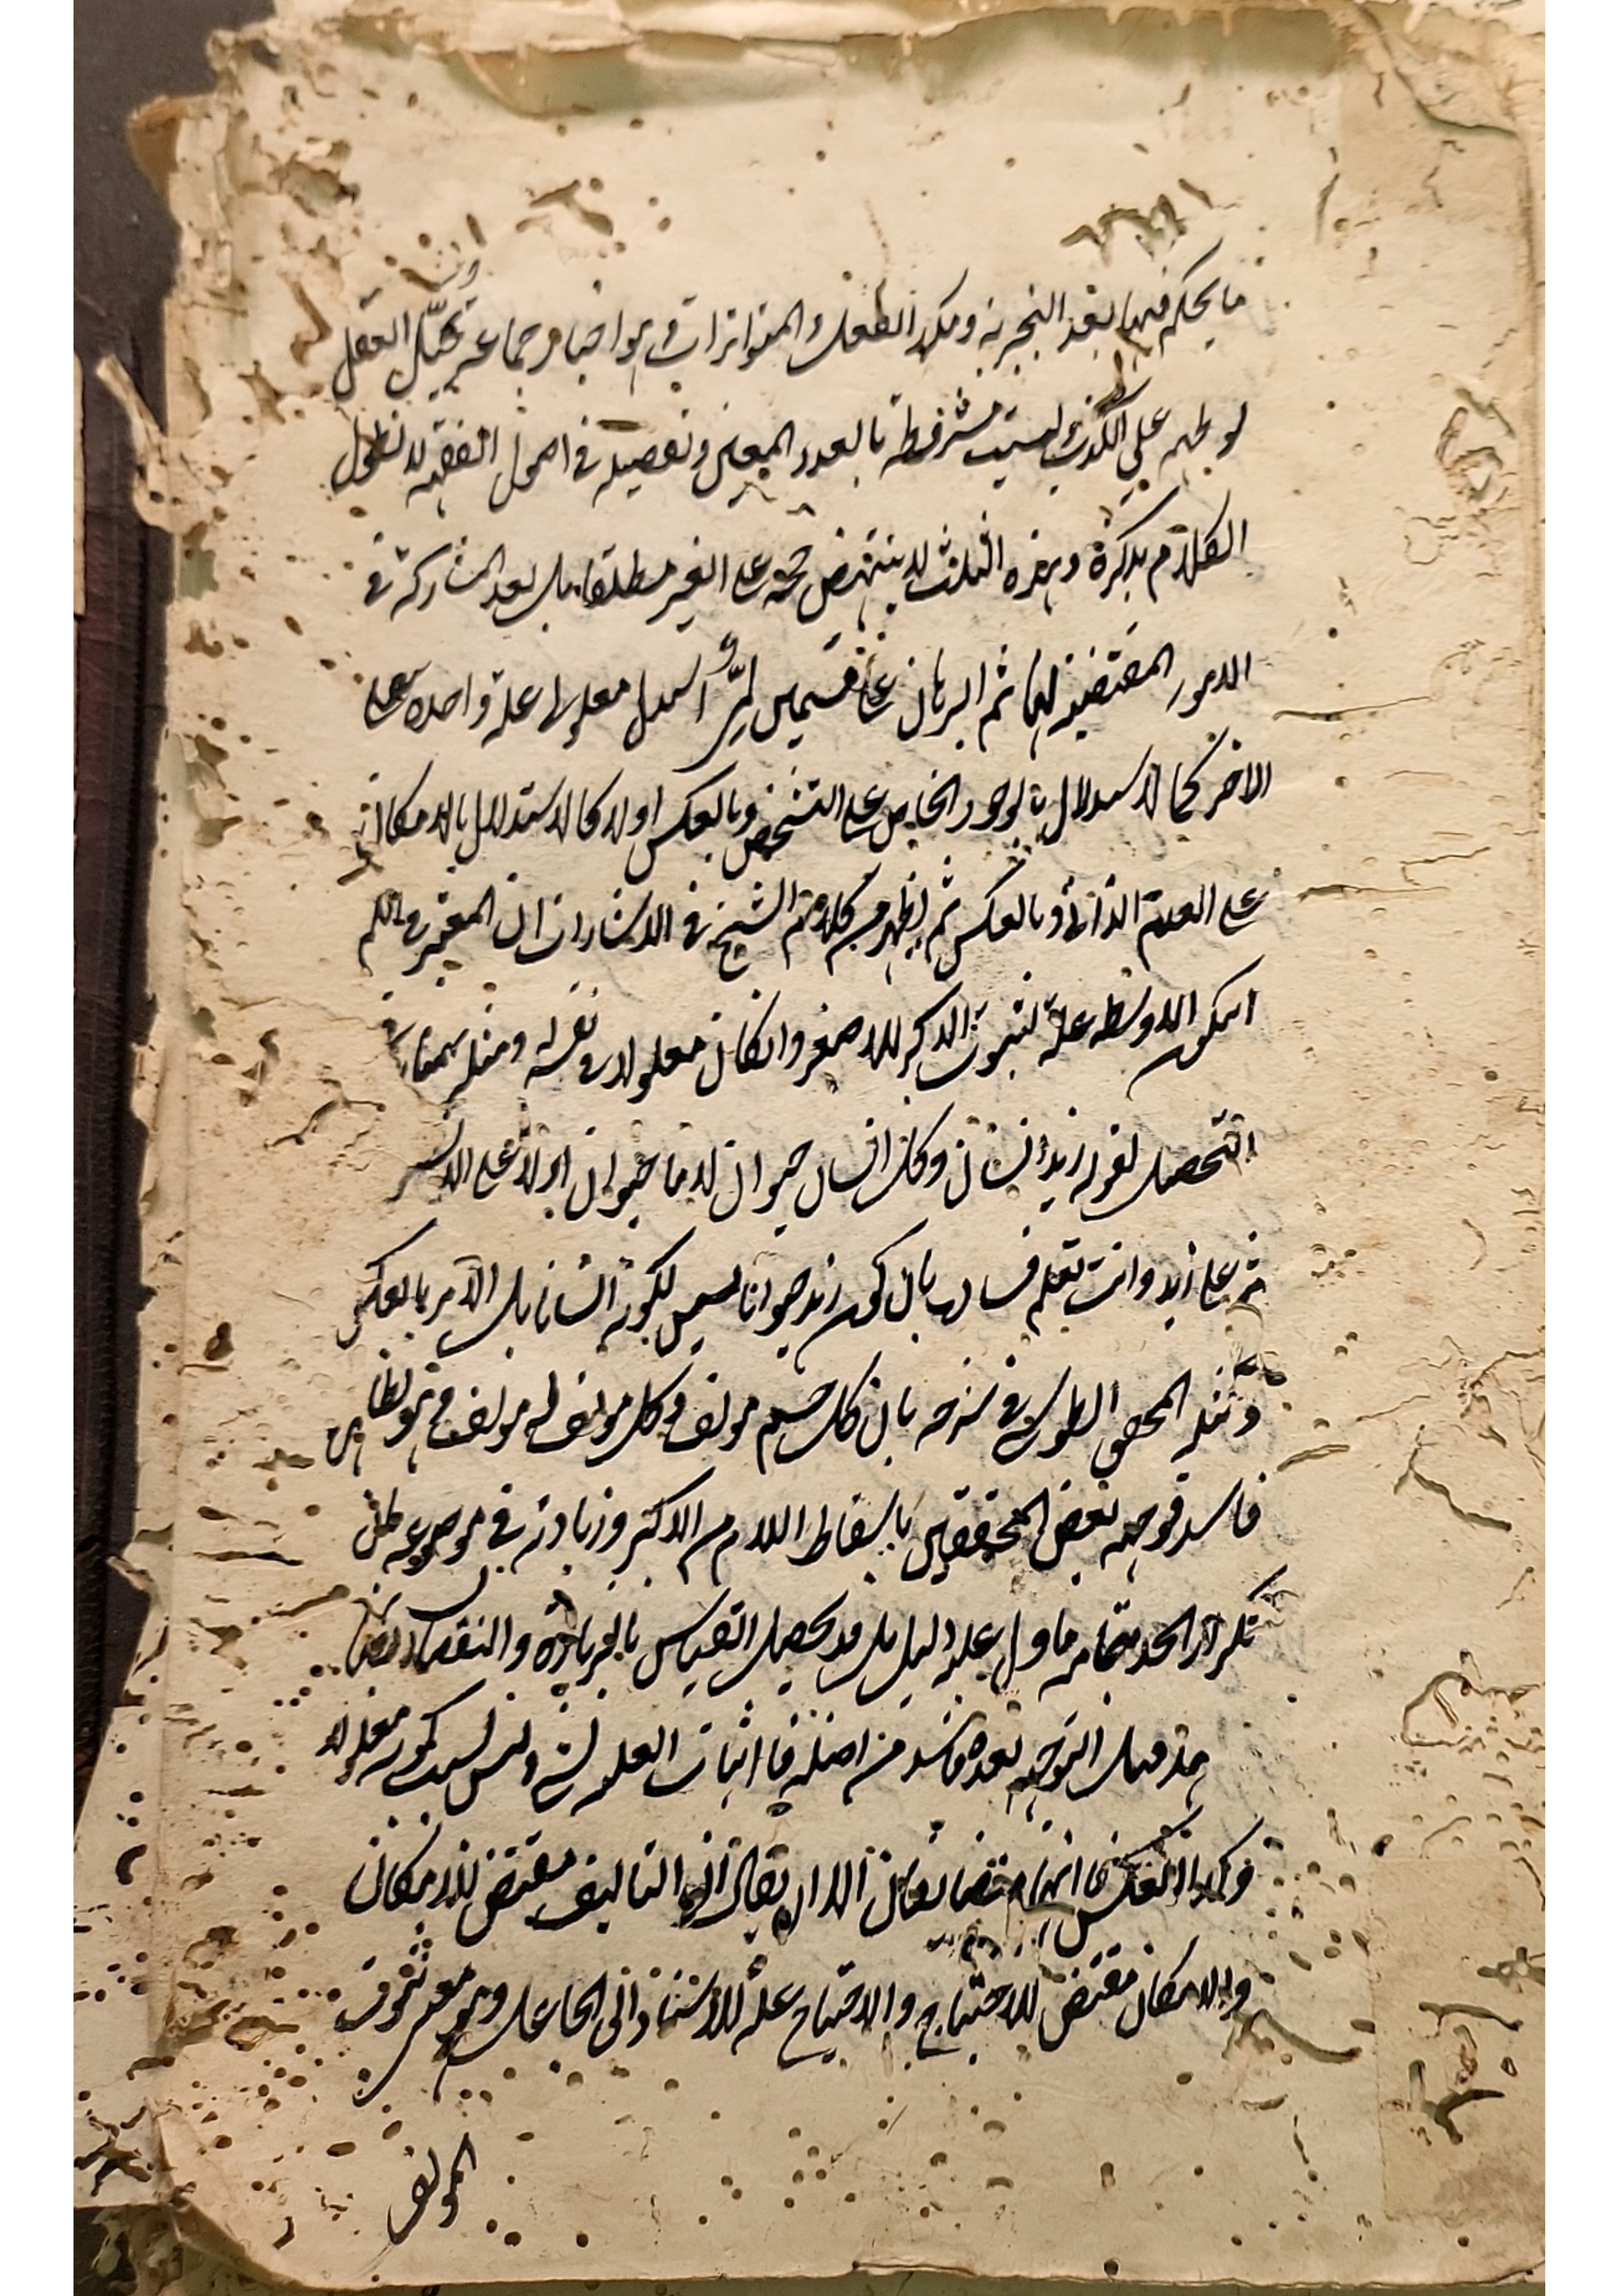 ما يحكم فيها بعد التجربة وتكرار الفعل والمتواترات وهو اخبار جماعة تحيل العقل
تواطيهم على الكذب وليست مشروطة بالعدد المعين وتفصيله في اصول الفقه لا نطول
الكلام بذكره وهذه الثلث لا ينتهض حجة على الغير مطلقا بل بعد المشاركة في
الامور المقتضية لها ثم البرهان على قسمين استدل معلولى علة واحدة على
الاخر كالاستدلال بالوجود الخاص على التشخص وبالعكس اولا كالاستدلال بالامكان
على العدم الذاتي وبالعكس ثم يظهر من كلام الشيخ في الاشارات ان المعتبر في اللم
ان يكون الاوسط علة لثبوت الاكبر للاصغر وان كان معلولا في نفسه ومثله بهمنيار في
التحصيل بقوله زيد انسان وكل انسان حيوان لان الحيوان اولا على الانسان
ثم على زيد وانت تعلم فساده بان كون زيد حيوانا ليس لكونه انسانا بل الامر بالعكس
ومثله المحقق الطوسي في شرحه بان كل جسم مولف وكل مولف له مولف وهو بظاهره
فاسد فوجهه بعض المحققين باسقاط اللام من الاكبر وزيادته في موضوعه فان
تكرار الحد بتمامه ما دل عليه دليل بل قد يحصل القياس بالزيادة والنقصان
هذا التوجيه بعد فاسد من اصله فاثبات العلة لشيء ليس بسبب كونه معلولا
وكذا العكس فانهما متضايفان الا ان يقال ان التاليف مقتض للامكان
والامكان مقتض للاحتياج والاحتياج علة للاستناد الى الجاعل وهو معنى ثبوت
المولف